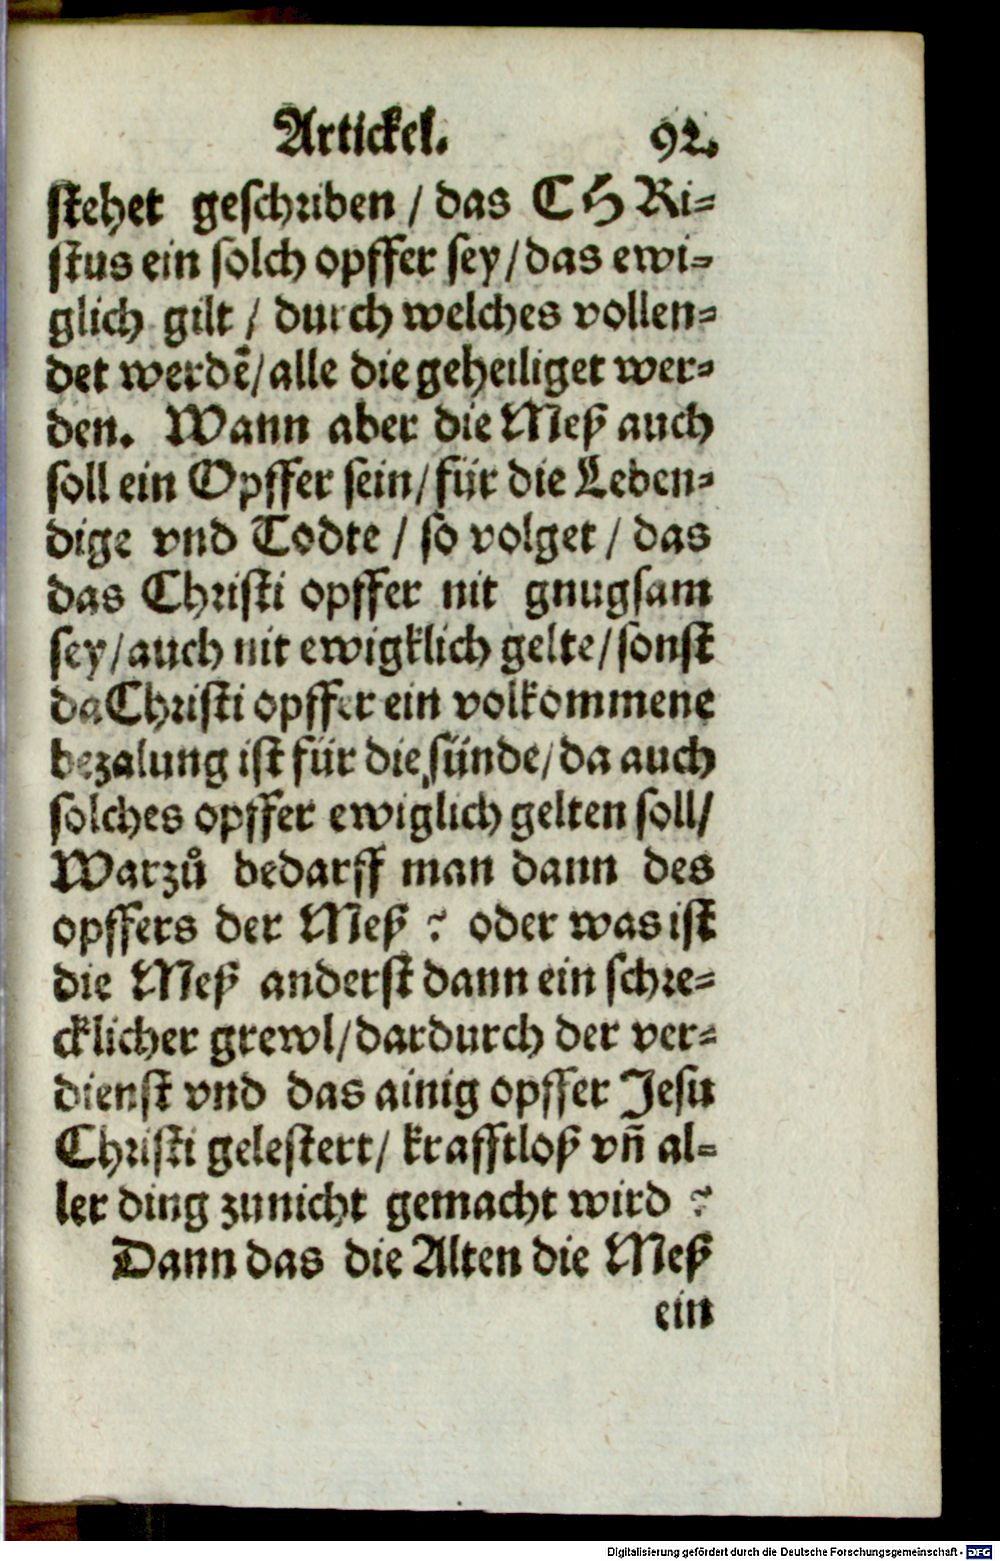 Artickel. 92.
stehet geschriben / das CHRi-
stus ein solch opffer sey / das ewi-
glich gilt / durch welches vollen-
det werdē / alle die geheiliget wer-
den. Wann aber die Meß auch
soll ein Opffer sein / für die Leben-
dige vnd Todte / so volget / das
das Christi opffer nit gnugsam
sey / auch nit ewigklich gelte / sonst
da Christi opffer ein volkommene
bezalung ist für die sünde / da auch
solches opffer ewiglich gelten soll /
Warzů bedarff man dann des
opffers der Meß ? oder was ist
die Meß anderst dann ein schre-
cklicher grewl / dardurch der ver-
dienst vnd das ainig opffer Jesu
Christi gelestert / krafftloß vñ al-
ler ding zunicht gemacht wird ?
Dann das die Alten die Meß
ein
Digitalisierung gefördert durch die Deutsche Forschungsgemeinschaft - DFG